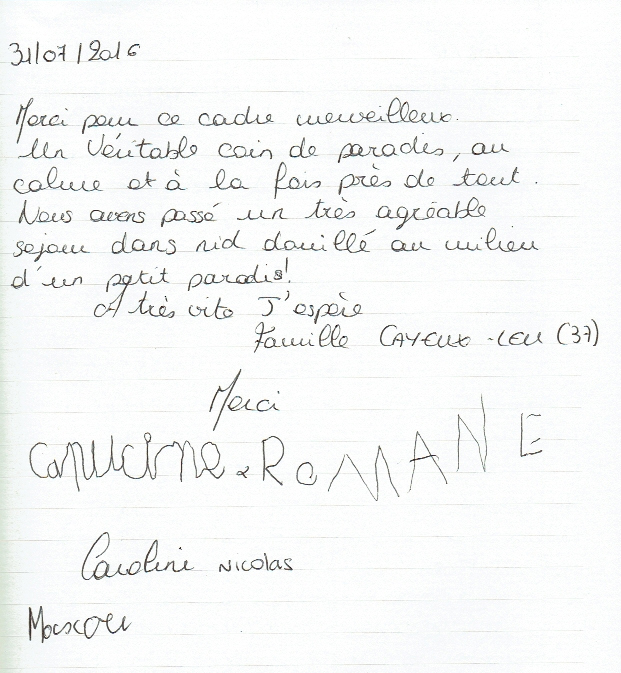 31/07/2016
Merci pour ce cadre merveilleux.
Un véritable coin de paradis, au
calme et à la fois près de tout.
Nous avons passé un très agréable
sejour dans nid douillé au milieu
d'un petit paradis!
A très vite J'espère
Famille CAYEUX-LEU (37)
Merci
Capucine & ROMANE
Caroline NICOLAS
Moscou